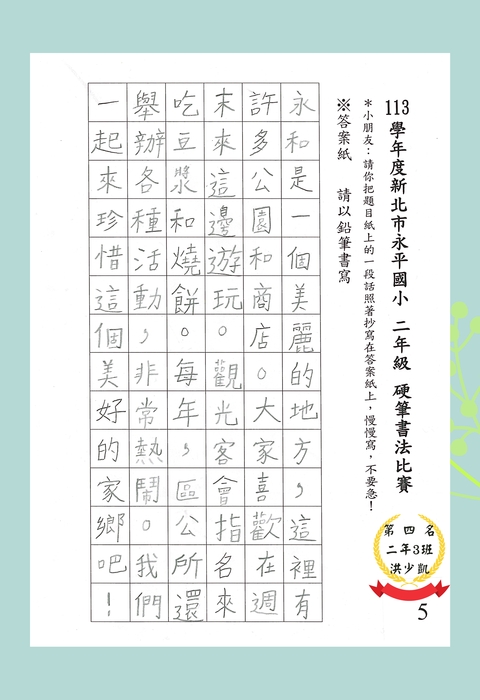 113學年度新北市永平國小 二年級 硬筆書法比賽
＊小朋友：請你把題目紙上的一段話照著抄寫在答案紙上，慢慢寫，不要急！
※答案紙 請以鉛筆書寫
永和是一個美麗的地方，這裡有
許多公園和商店。大家喜歡在週
末來這邊遊玩。觀光客會指名來
吃豆漿和燒餅。每年，區公所還
舉辦各種活動，非常熱鬧。我們
一起來珍惜這個美好的家鄉吧！
第四名
二年3班
洪少凱
5